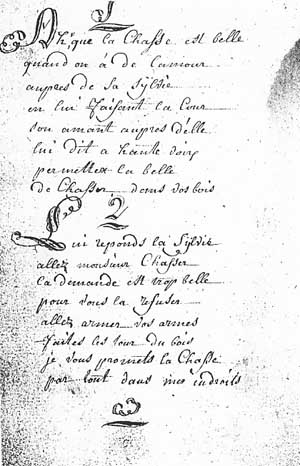 1
Ah! que la Chasse est belle
quand on á de lamour
aupres de sa Sylvie
en lui faisant la Cour
son amant aupres d'elle
lui dit a haute voix
permettez la belle
de Chasser dans vos bois
2
Lui reponds la Sylvie
allez monsieur Chasser
la demande est trop belle
pour vous la refuser
allez armer vos armes
faites les tour du bois
je vous promets la Chasse
par tout dans mes indroits